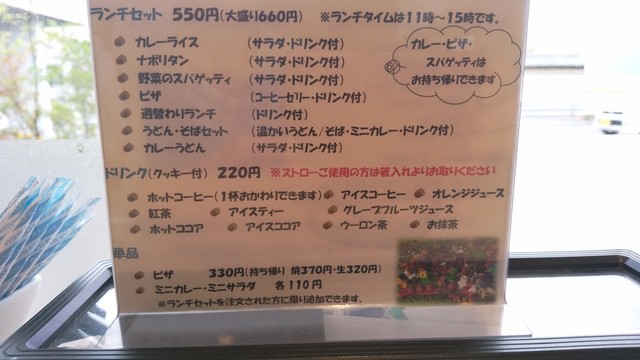 ランチセット 550円(大盛り660円) ※ランチタイムは11時～15時です。
カレーライス (サラダ・ドリンク付)
ナポリタン (サラダ・ドリンク付)
野菜のスパゲッティ (サラダ・ドリンク付)
ピザ (コーヒーゼリー・ドリンク付)
週替わりランチ (ドリンク付)
うどん・そばセット (温かいうどん/そば・ミニカレー・ドリンク付)
カレーうどん (サラダ・ドリンク付)
カレー・ピザ・
スパゲッティは
お持ち帰りできます
ドリンク(クッキー付) 220円 ※ストローご使用の方は箸入れよりお取りください
ホットコーヒー(1杯おかわりできます) アイスコーヒー オレンジジュース
紅茶 アイスティー グレープフルーツジュース
ホットココア アイスココア ウーロン茶 お抹茶
単品
ピザ 330円(持ち帰り 焼370円・生320円)
ミニカレー・ミニサラダ 各110円
※ランチセットを注文された方に限り追加できます。